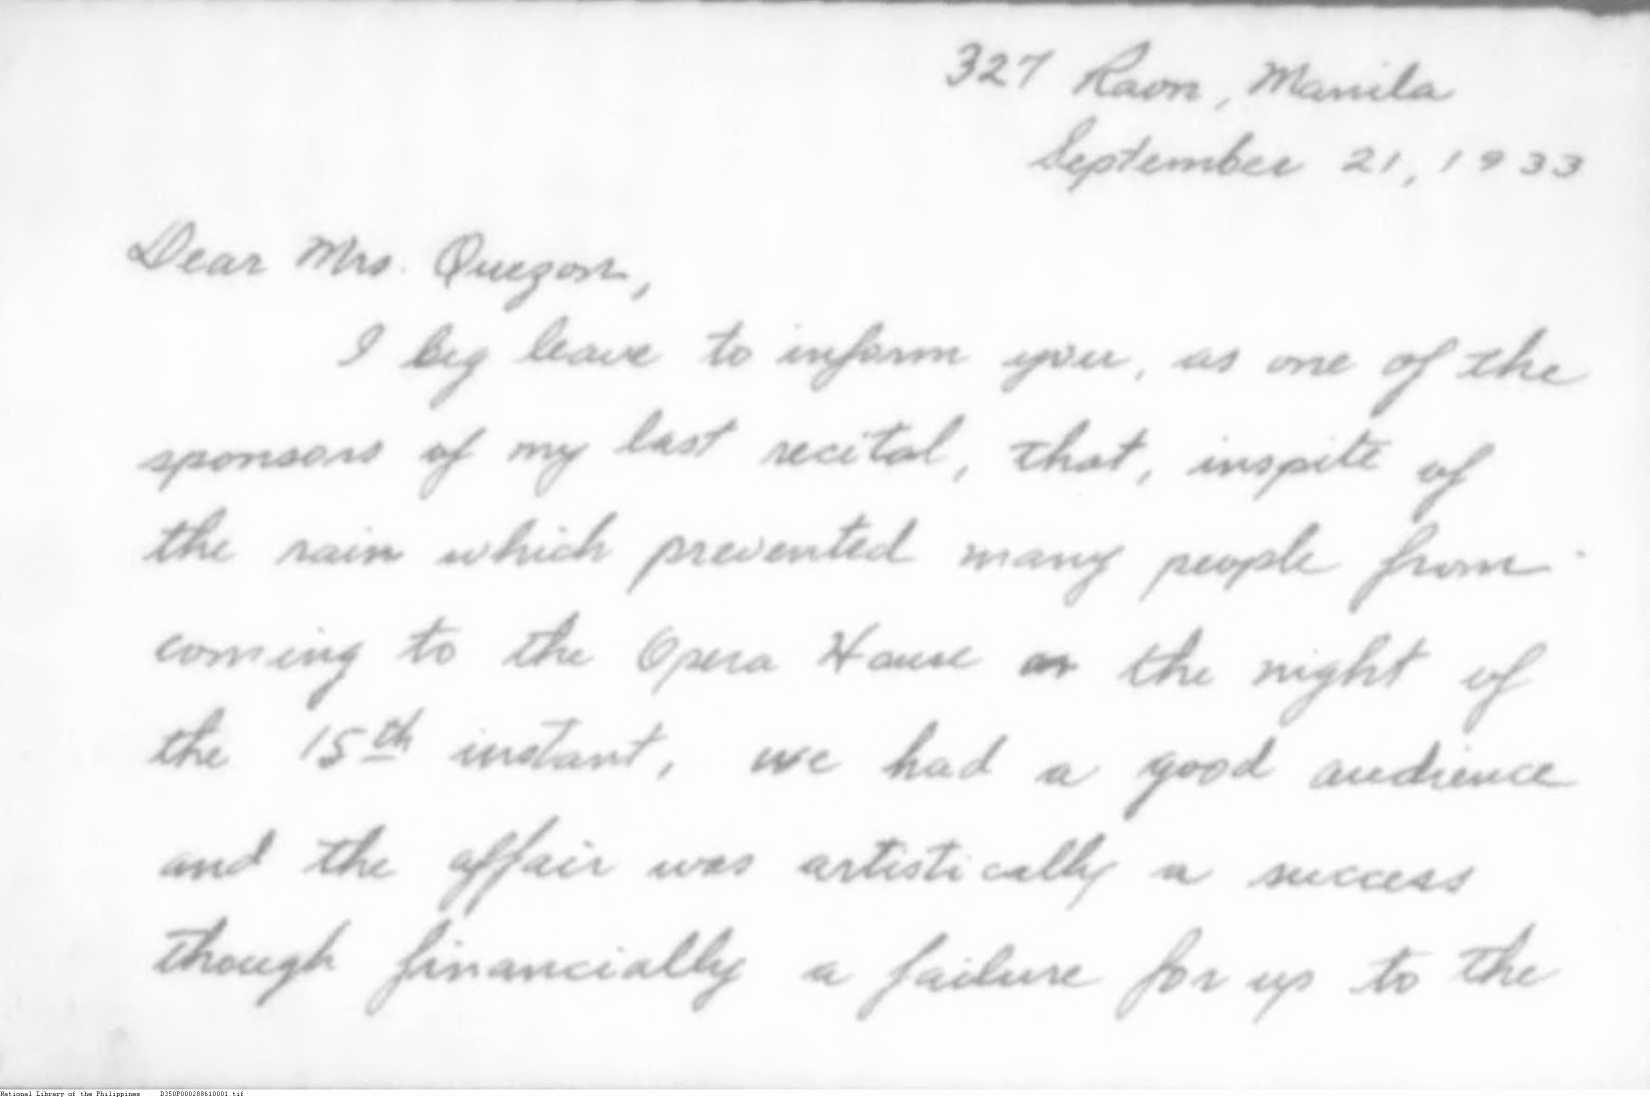 327 Raon, Manila
September 21, 1933
Dear Mrs. Quezon,
I beg leave to inform you, as one of the
sponsors of my last recital, that, inspite of
the rain which prevented many people from
coming to the Opera House on the night of
the 15th instant, we had a good audience
and the affair was artistically a success
though financially a failure for up to the
National Library of the Philippines D350P000288610001.tif